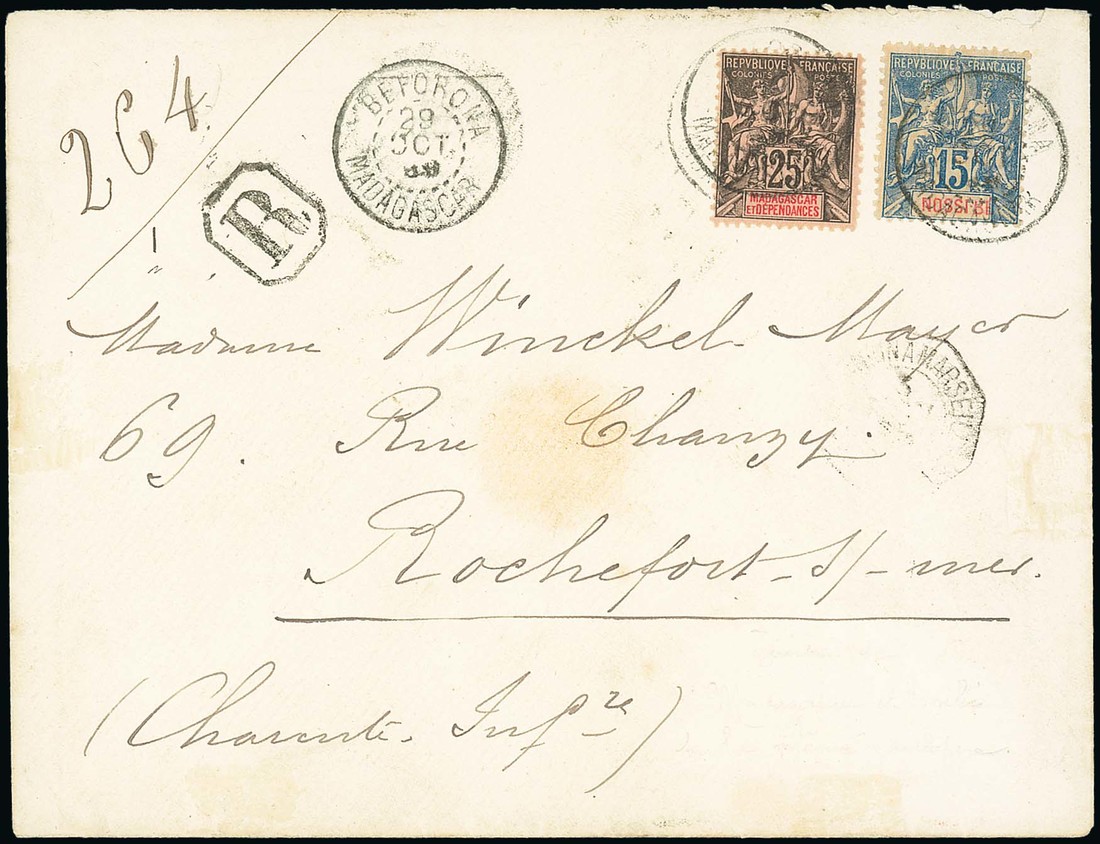 264
R
BEFORONA
29
OCT.
MADAGASCAR
REPVBLIQVE FRANÇAISE
COLONIES POSTES
25
MADAGASCAR
ET DÉPENDANCES
REPVBLIQVE FRANÇAISE
COLONIES POSTE
15
NOSSI-BÉ
Madame Winckel Mayer
69. Rue Chanzy.
Rochefort-s/-mer.
(Charente-Infre)